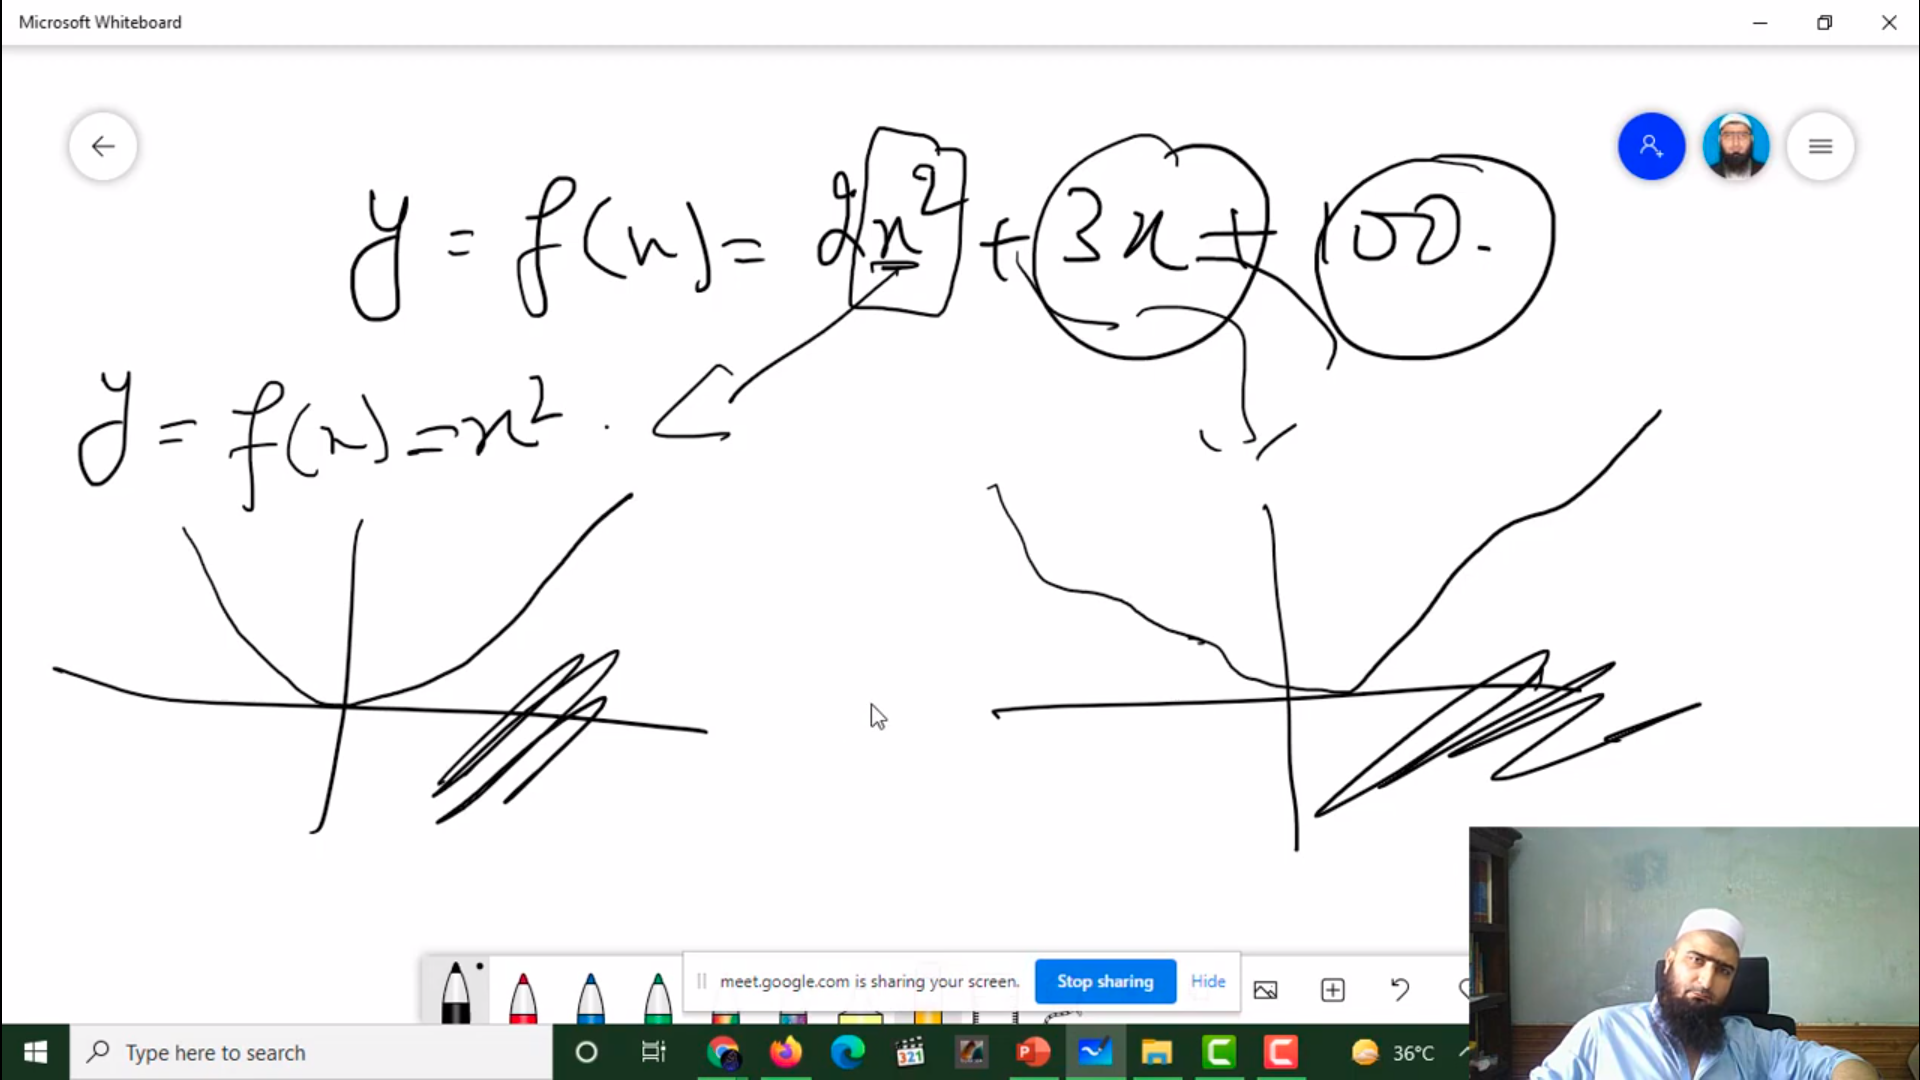 Microsoft Whiteboard
y = f(x) = 2x² + 3x + 100.
y = f(x) = x².
meet.google.com is sharing your screen. Stop sharing Hide
Type here to search
321
36°C